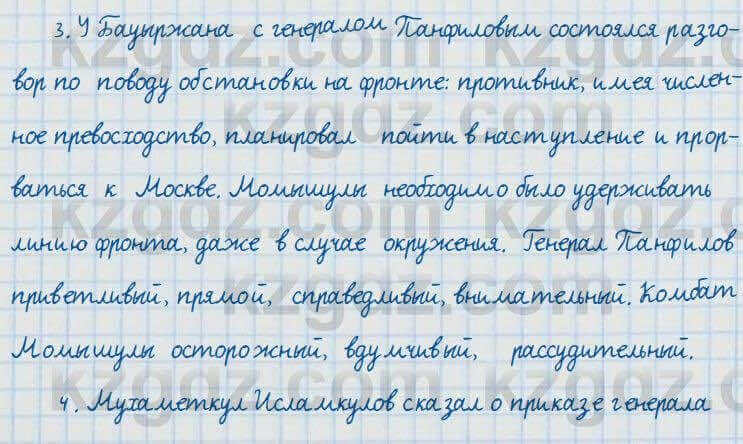 3. У Бауыржана с генералом Панфиловым состоялся разго-
вор по поводу обстановки на фронте: противник, имея числен-
ное превосходство, планировал пойти в наступление и прор-
ваться к Москве. Момышулы необходимо было удерживать
линию фронта, даже в случае окружения. Генерал Панфилов
приветливый, прямой, справедливый, внимательный. Комбат
Момышулы осторожный, вдумчивый, рассудительный.
4. Мухаметкул Исламкулов сказал о приказе генерала
kzgdz.com